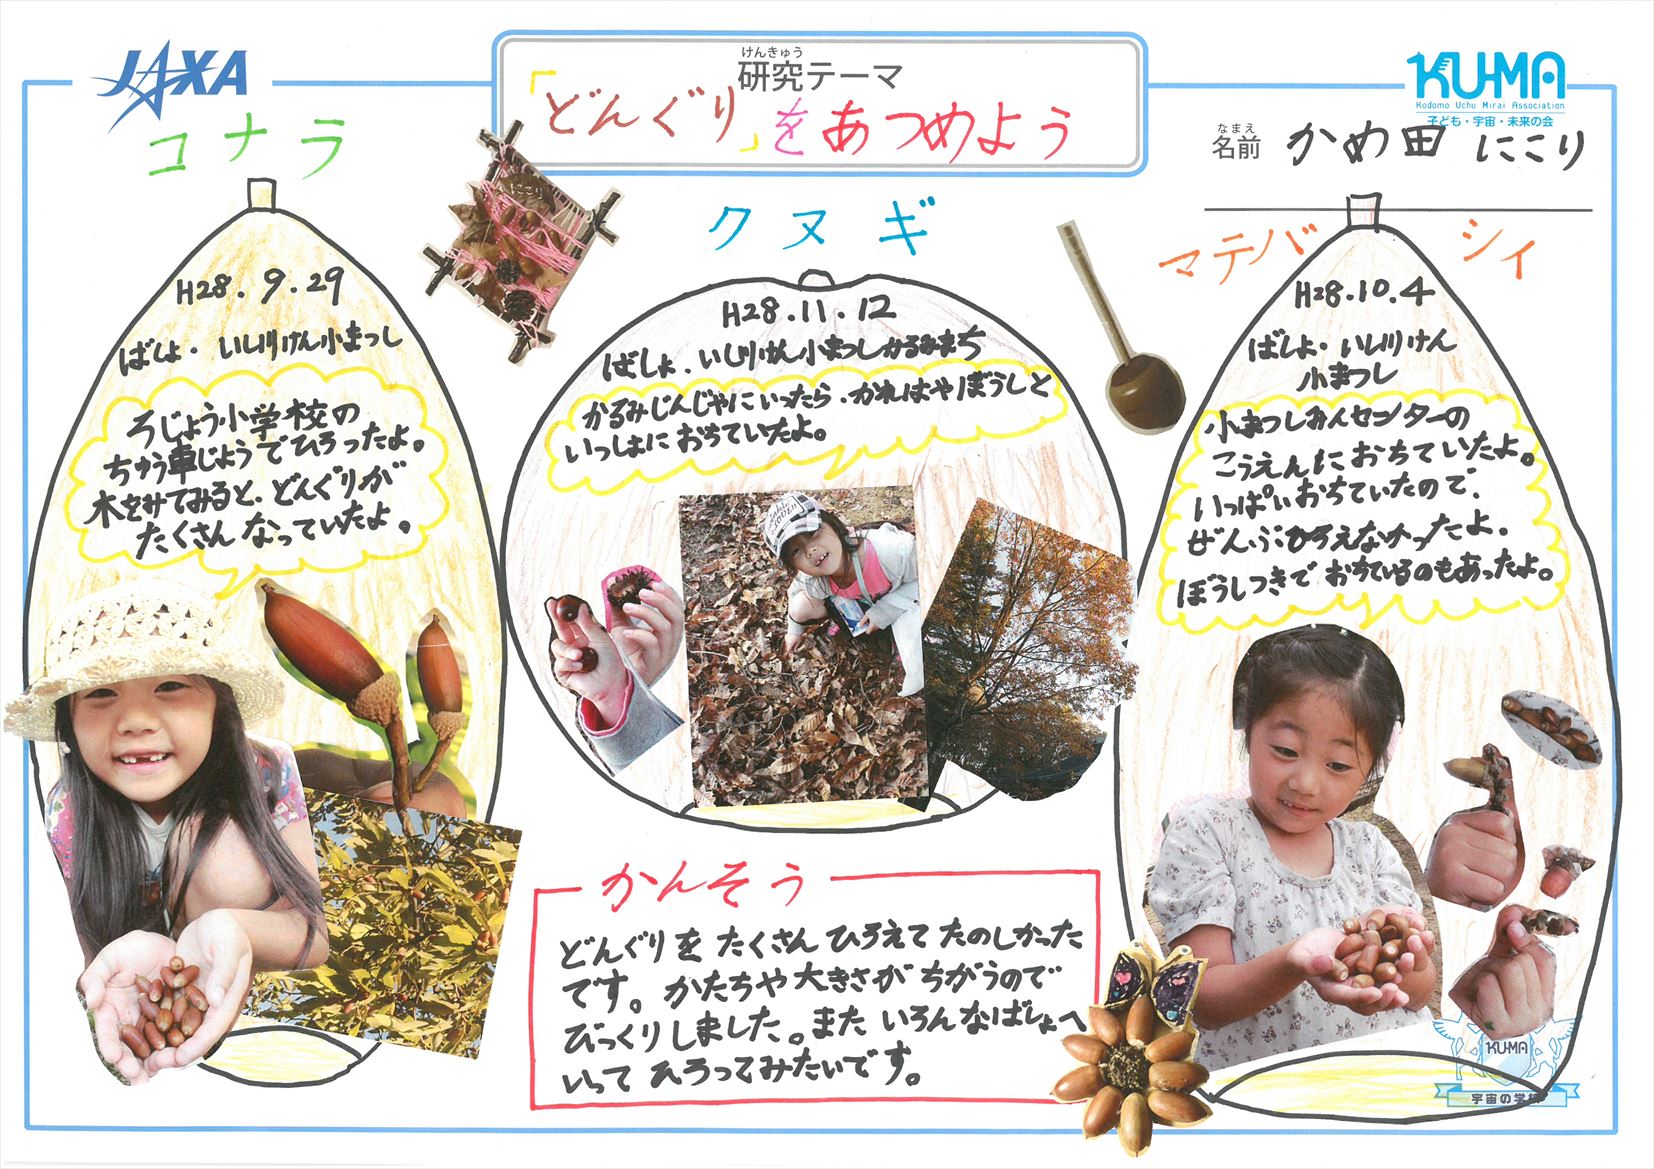 JAXA
けんきゅう
研究テーマ
「どんぐり」をあつめよう
KU-MA
Kodomo Uchu Mirai Association
子ども・宇宙・未来の会
なまえ
名前 かめ田 にこり
コナラ
H28.9.29
ばしょ・いし川けん小まつし
ろじょう小学校の
ちゅう車じょうでひろったよ。
木をみてみると、どんぐりが
たくさんなっていたよ。
にこり
クヌギ
H28.11.12
ばしょ.いし川けん小まつしかるみまち
かるみじんじゃにいったら、かれはやぼうしと
いっしょにおちていたよ。
マテバシイ
H28.10.4
ばしょ・いし川けん
小まつし
小まつしみんセンターの
こうえんにおちていたよ。
いっぱいおちていたので、
ぜんぶひろえなかったよ.
ぼうしつきでおちているのもあったよ。
かんそう
どんぐりをたくさんひろえてたのしかった
です。かたちや大きさがちがうので
びっくりしました。またいろんなばしょへ
いってひろってみたいです。
KUMA
宇宙の学校